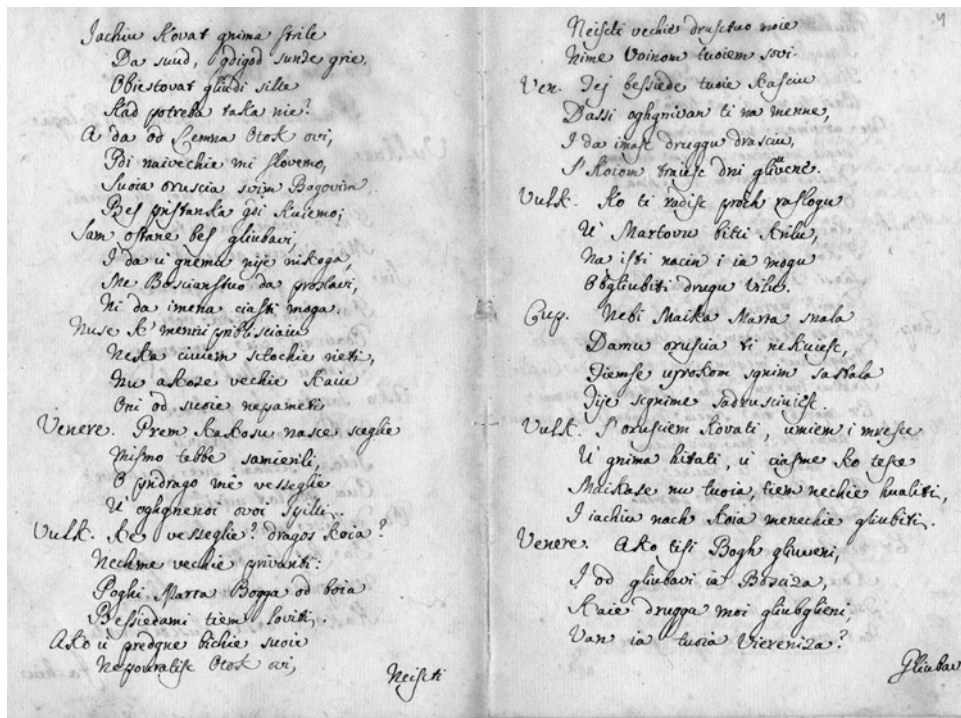 Iachiu Kovat gnima strile
Da svud, gdigod sunze grie,
Obiestovat gliudi sille
Kad potreba taka nie?
A da od Lemna Otok ovi,
Gdi naivechie mi slovemo,
Svoia oruscia svim Bogovim
Bes pristanka gdi kuiemo;
Sam ostane bes gliubavi,
I da u gnemu nije nikoga,
Me Boscianstvo da proslavi,
Ni da imena ciasti moga.
Nuse k' menni pribliscaiu
Neka ciuiem sctochie rietti,
Nu akoze vechie kaiu
Oni od svoie nepameti
Venere. Prem kakosu nasce sceglie
Mismo tebbe samierili,
O pridrago mé vesseglie
U' oghgnenoi ovoi Spilli.
Vulk. Ke vesseglie? dragos koia?
Nechme vechie privariti:
Poghi Marta Bogga od boia
Bessiedami tiem loviti.
Ako ù predgne bichie svoie
Nepovratisc Otok ovi,
Neiscti
4
Neiscti vechie drusctvo moie
Nime Voinom tvoiem sovi.
Ven. Iej bessiede tvoie kasciu
Dassi oghgnivan ti na menne,
I da imasc druggu drasciu,
S' koiom traiesc dni gliuvene.
Vulk. Ko ti radisc proch raslogu
U' Martovu bitti krilu,
Na isti nacin i ia mogu
Obgliubiti drugu Vilu.
Cup. Nebi Maika Marta snala
Damu oruscia ti nekuiesc,
Tiemse usrokom sgnim sastala
Iije scgnime sadrusciuiesc
Vulk. S' orusciem kovati, umiem i mresce
U' gnima hitati, ù ciasme ko tesce
Maikase nu tvoia, tiem nechie hualiti,
I iachiu nach koia menechie gliubiti.
Venere. Ako tisi Bogh gliuveni,
I od gliubavi ia Bosciza,
Kaie drugga moi gliubglieni,
Van ia tvoia Viereniza?
Gliubav